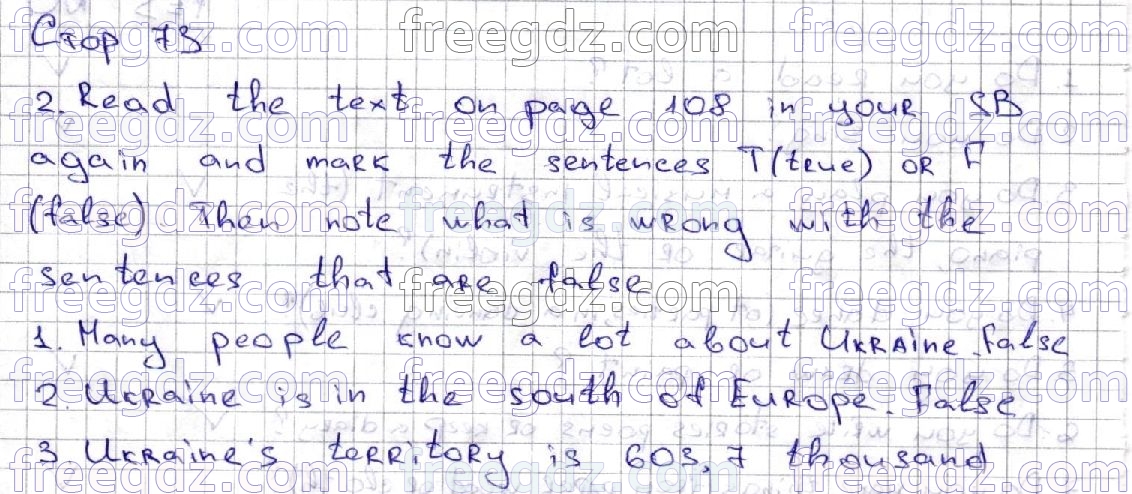 Стор 73
2. Read the text on page 108 in your SB
again and mark the sentences T(true) or F
(false) Then note what is wrong with the
sentences that are false
1. Many people know a lot about Ukraine. False
2. Ukraine is in the south of Europe. False
3 Ukraine's territory is 603,7 thousand